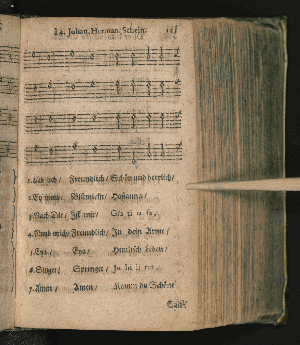 24. Johan. Herman. Schein. 123
1. Lieblich / Freundlich / Schön und herrlich /
2. Ey mein / Blümlein / Hosianna /
3. Nach Dir / Ist mir / Gra ti o sa /
4. Nimb mich / Freundlich / In dein Arme /
5. Eya / Eya / Himlisch Leben /
6. Singet / Springet / Ju bi li ret /
7. Amen / Amen / Komm du Schöne